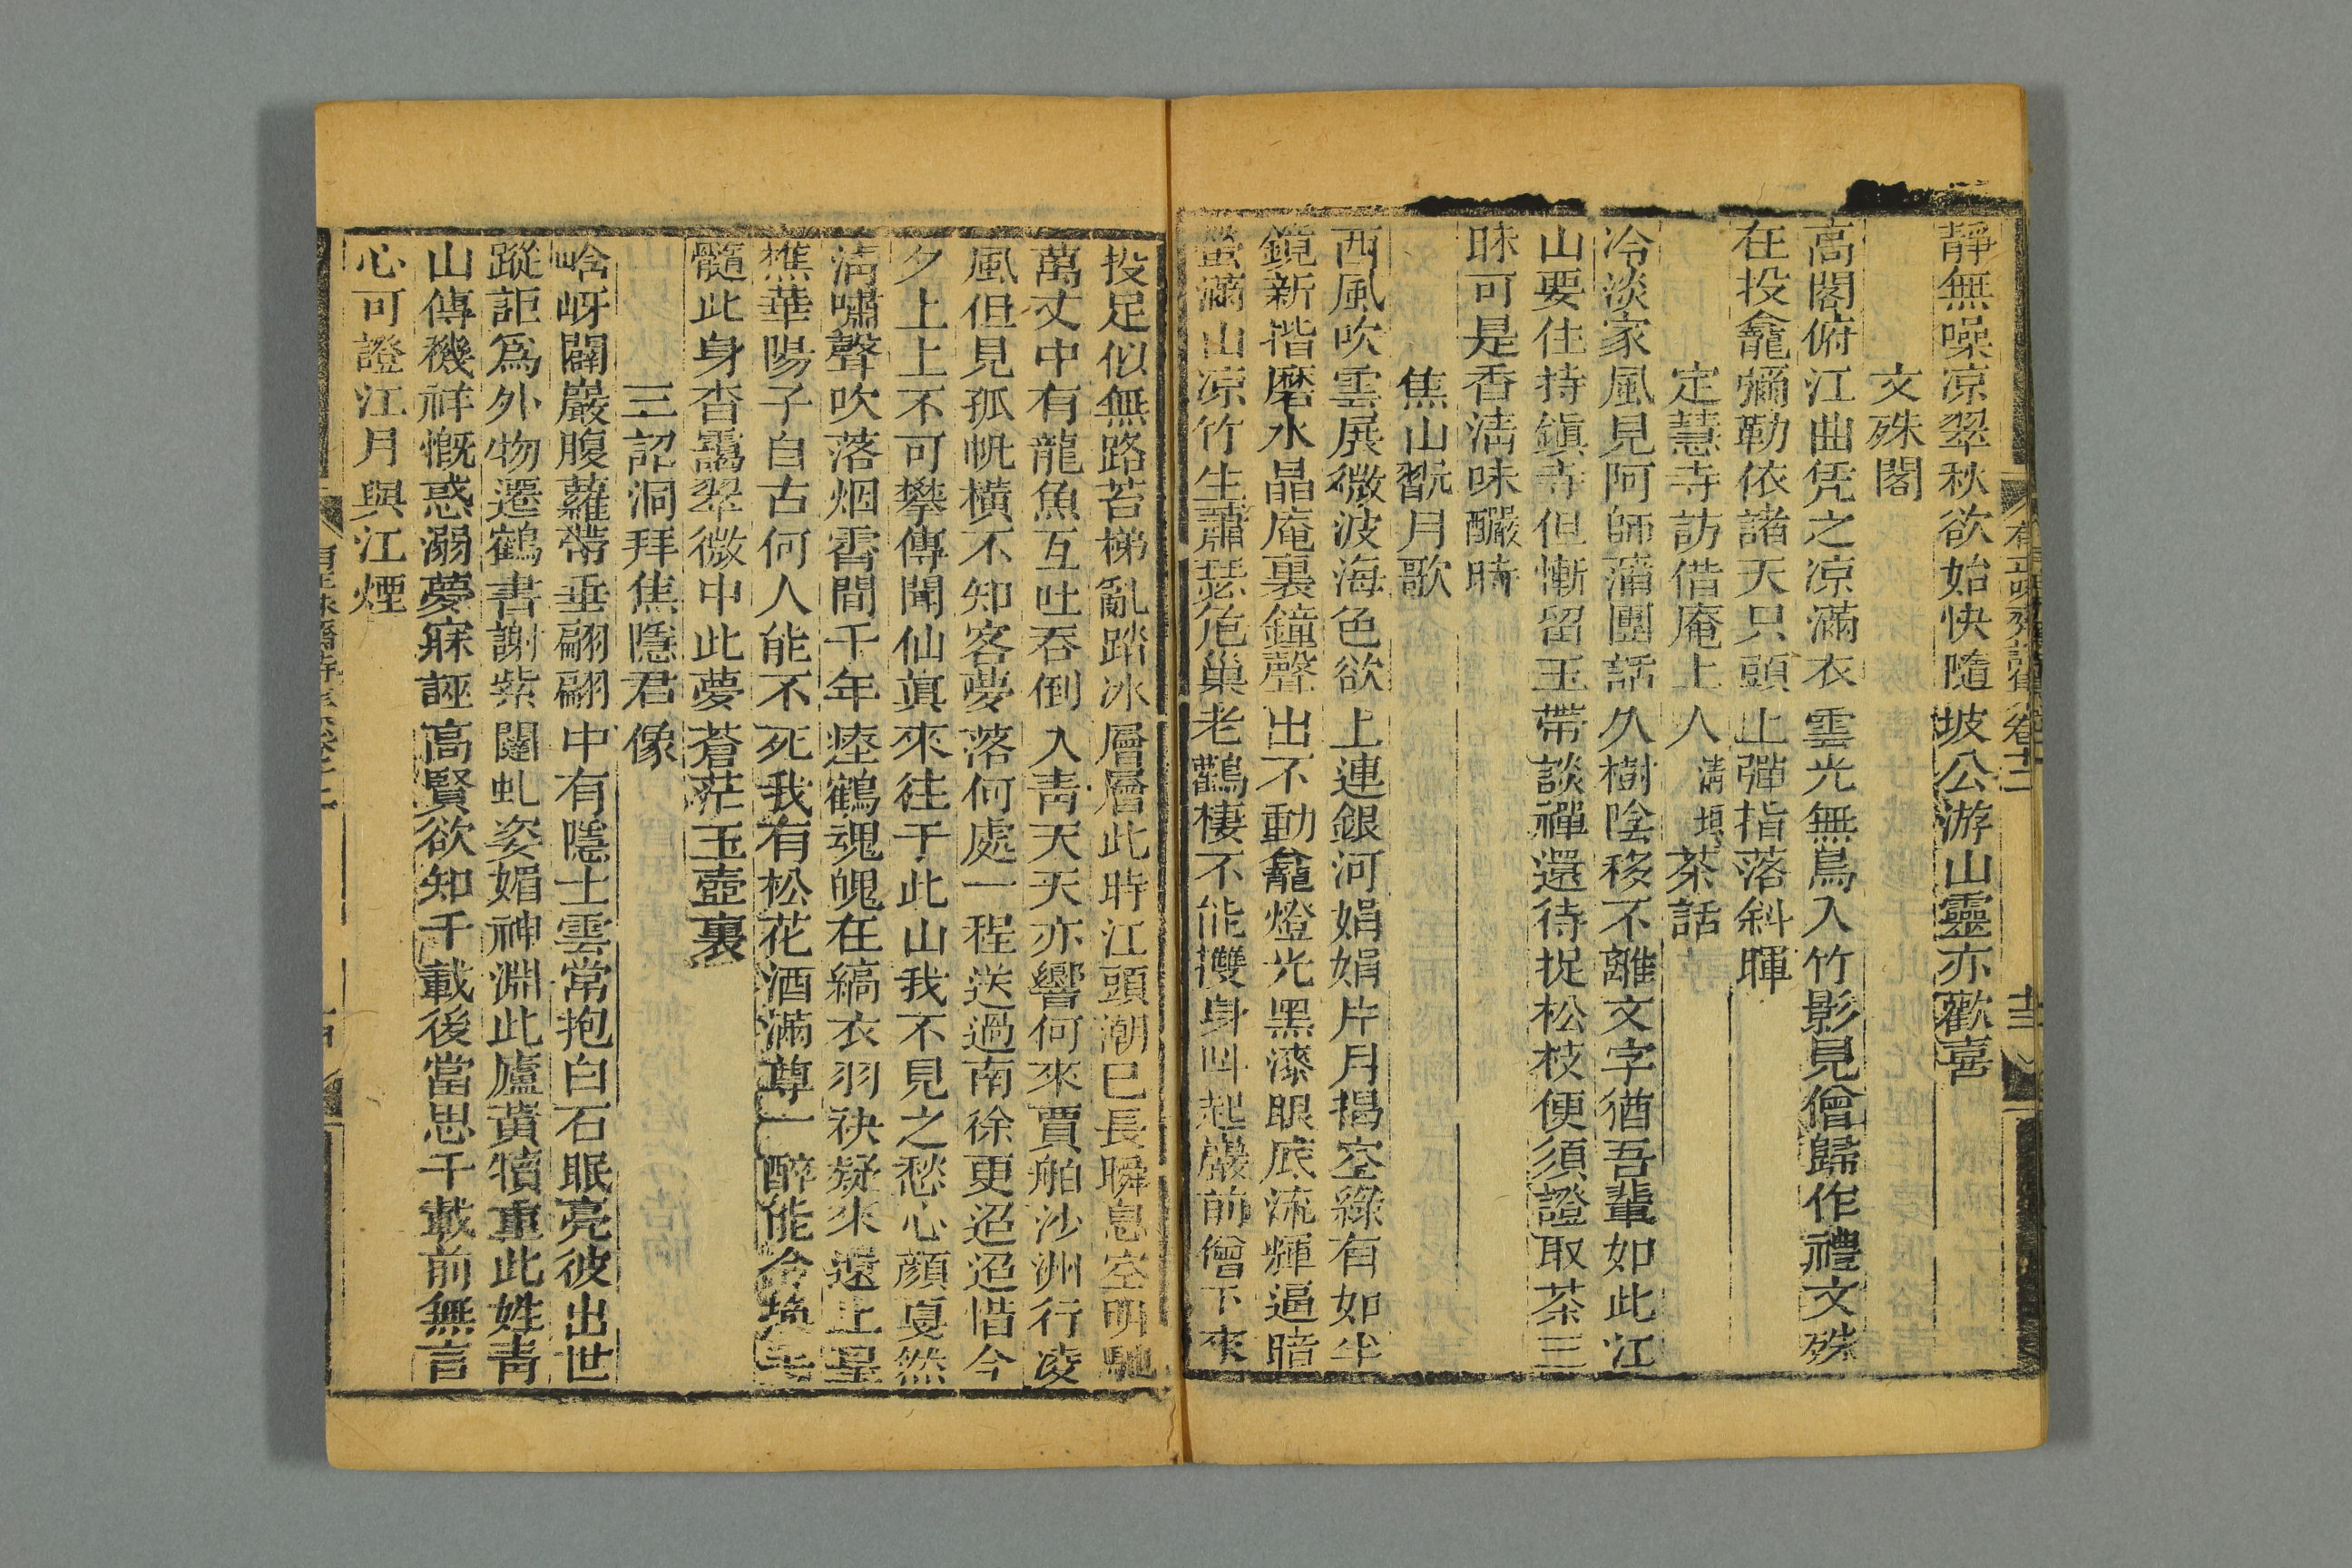 有正味齋詩集卷十二
十三
靜無噪凉翠秋欲始快隨坡公游山靈亦歡喜
文殊閣
高閣俯江曲凭之凉滿衣雲光無鳥入竹影見僧歸作禮文殊
在投龕彌勒依諸天只頭上彈指落斜暉
定慧寺訪借庵上人淸堌茶話
冷淡家風見阿師蒲團話久樹陰移不離文字猶吾輩如此江
山要住持鎭寺但慚留玉帶談禪還待捉松枝便須證取茶三
昧可是香淸味釅時
焦山翫月歌
西風吹雲展微波海色欲上連銀河娟娟片月揭空綠有如半
鏡新揩磨水晶庵裏鐘聲出不動龕燈光黑漆眼底流輝逼暗
蛩滿山凉竹生蕭瑟危巢老鸛棲不能攫身叫起巖前僧下來
投足似無路苔梯亂踏冰層層此時江頭潮已長瞬息空明馳
萬丈中有龍魚互吐吞倒入靑天天亦響何來賈舶沙洲行凌
風但見孤帆橫不知客夢落何處一程送過南徐更迢迢惜今
夕上上不可攀傳聞仙眞來往于此山我不見之愁心顏戛然
淸嘯聲吹落烟霄間千年瘞鶴魂魄在縞衣羽袂疑來還上呈
樵華陽子自古何人能不死我有松花酒滿尊一醉能令換
髓此身杳靄翠微中此夢蒼茫玉壺裏
三詔洞拜焦隱君像
㟏岈闢巖腹蘿帶垂翩翩中有隱士雲常抱白石眠亮彼出世
蹤詎爲外物遷鶴書謝紫闥虬姿媚神淵此廬黃犢重此姓靑
山傳磯祥慨惑溺夢寐誣高賢欲知千載後當思千載前無言
心可證江月與江煙